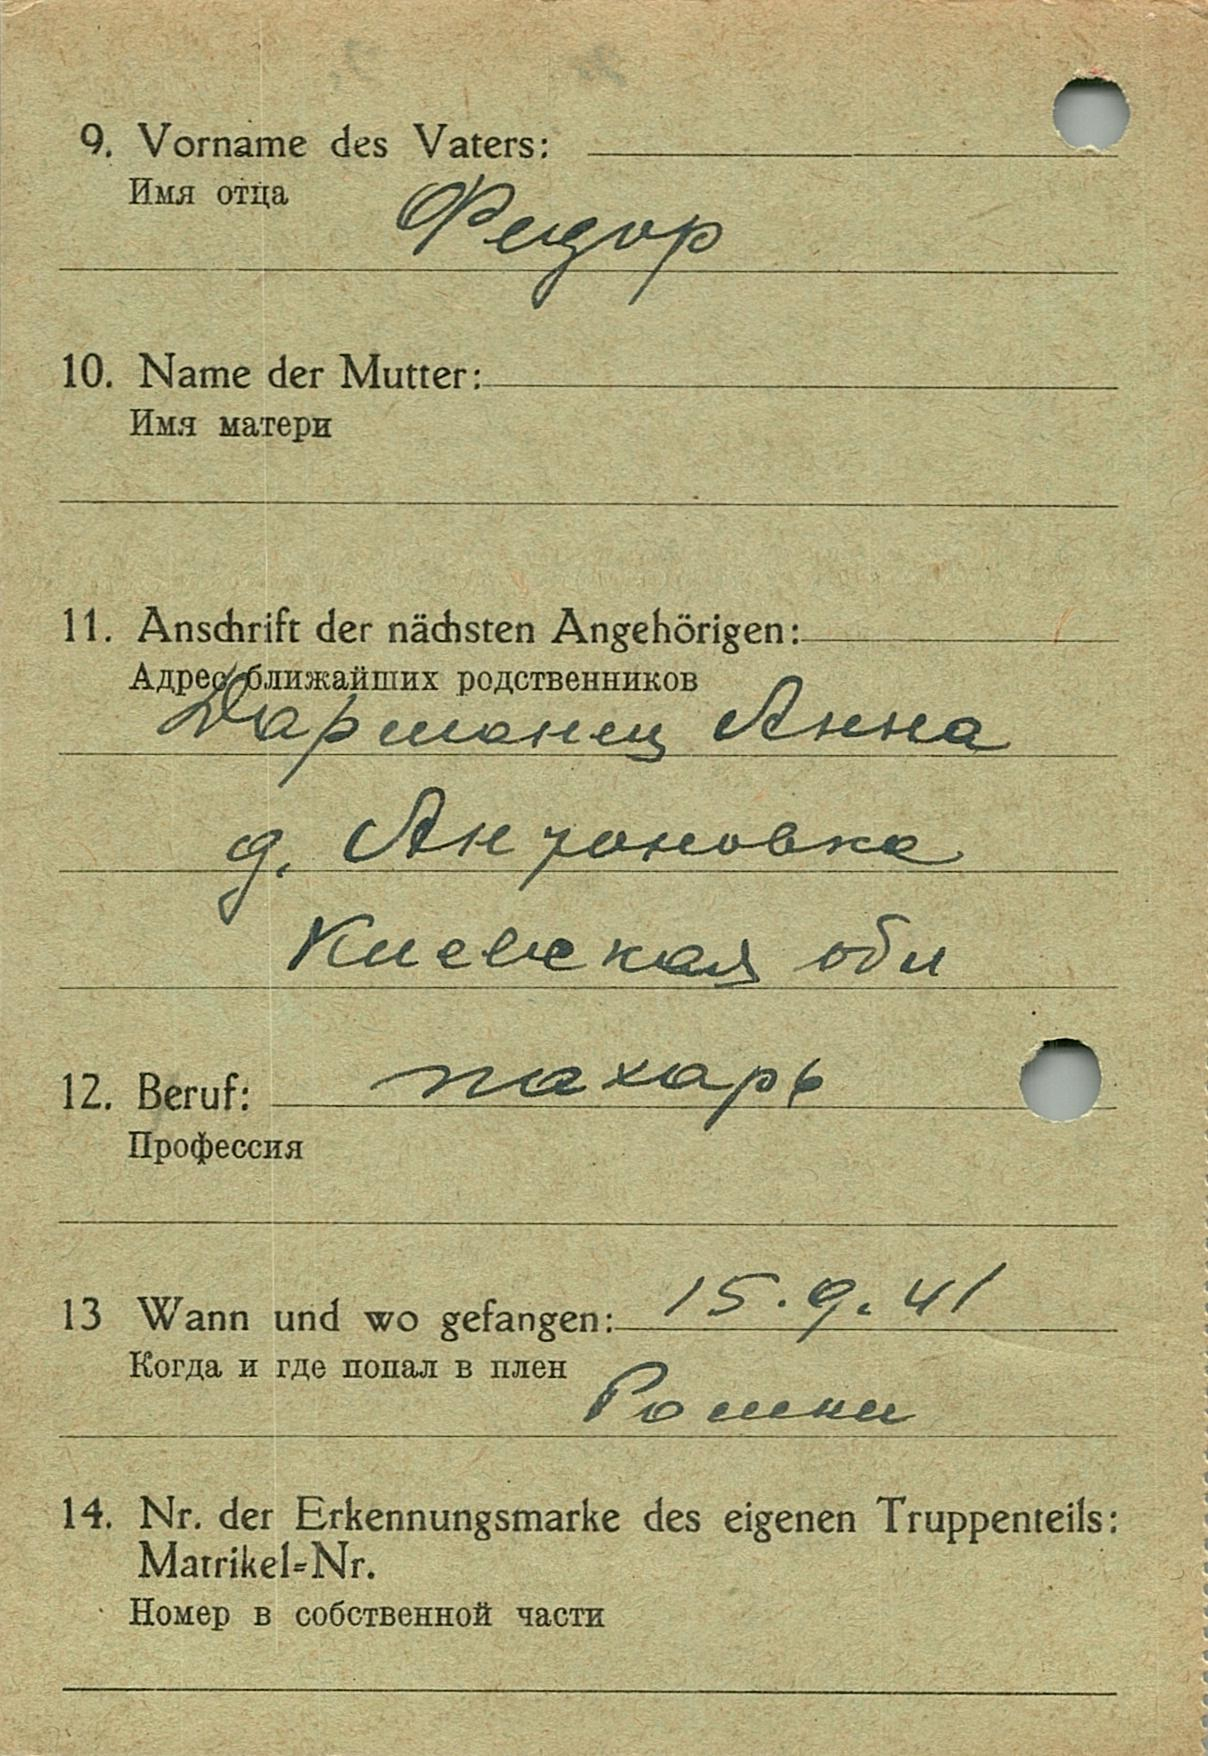 9. Vorname des Vaters:
Имя отца
Федор
10. Name der Mutter:
Имя матери
11. Anschrift der nächsten Angehörigen:
Адрес ближайших родственников
Анна
д. Антоновка
Киевская обл
12. Beruf: пахарь
Профессия
13 Wann und wo gefangen: 15.9.41
Когда и где попал в плен
Ромни
14. Nr. der Erkennungsmarke des eigenen Truppenteils:
Matrikel=Nr.
Номер в собственной части